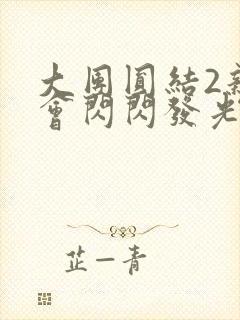 大團圓結2新
會閃閃發光
芷一青